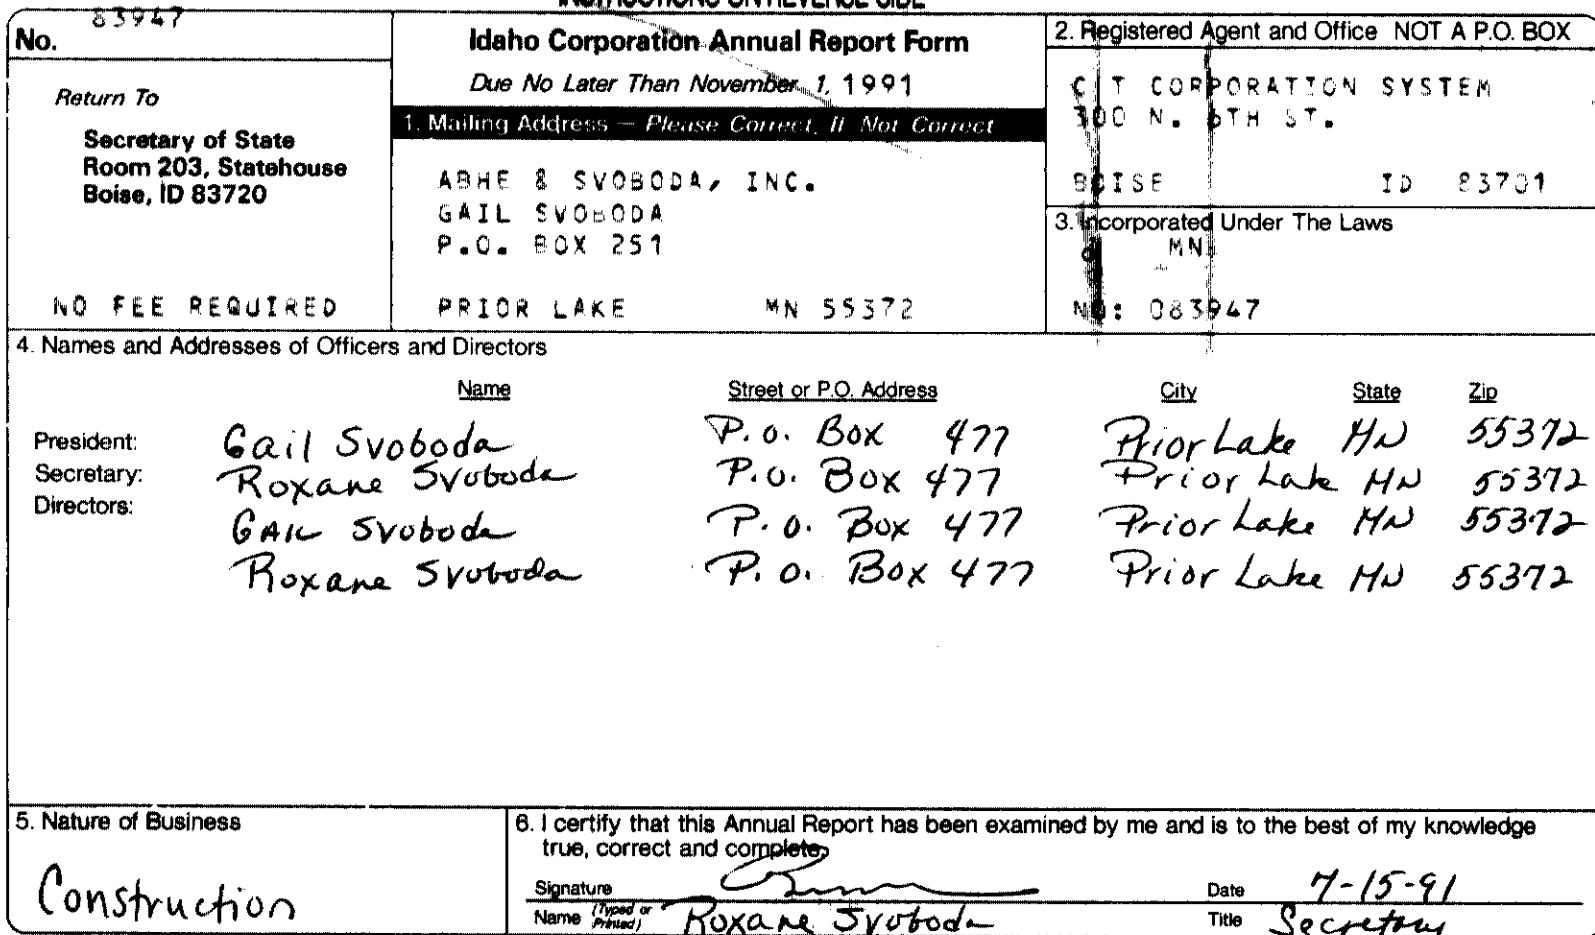 INSTRUCTIONS ON REVERSE SIDE
No. 83947
Return To
Secretary of State
Room 203, Statehouse
Boise, ID 83720
NO FEE REQUIRED
Idaho Corporation Annual Report Form
Due No Later Than November 1, 1991
1. Mailing Address — Please Correct, If Not Correct
ABHE & SVOBODA, INC.
GAIL SVOBODA
P.O. BOX 251
PRIOR LAKE MN 55372
2. Registered Agent and Office NOT A P.O. BOX
C T CORPORATION SYSTEM
300 N. 6TH ST.
BOISE ID 83701
3. Incorporated Under The Laws
of MN
NO: 083947
4. Names and Addresses of Officers and Directors
Name Street or P.O. Address City State Zip
President: Gail Svoboda P.O. Box 477 Prior Lake MN 55372
Secretary: Roxane Svoboda P.O. Box 477 Prior Lake MN 55372
Directors:
GAIL Svoboda P.O. Box 477 Prior Lake MN 55372
Roxane Svoboda P.O. Box 477 Prior Lake MN 55372
5. Nature of Business
Construction
6. I certify that this Annual Report has been examined by me and is to the best of my knowledge
true, correct and complete.
Signature Date 7-15-91
Name (Typed or Printed) Roxane Svoboda Title Secretary